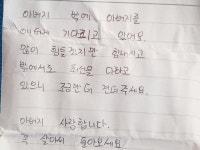 아버지 밖에 아버지를
애타게 기다리고 있어요
많이 힘들겠지만 힘내시고
밖에서도 최선을 다하고
있으니 조금만 더 견뎌주세요.
아버지 사랑합니다.
꼭 살아서 돌아오세요